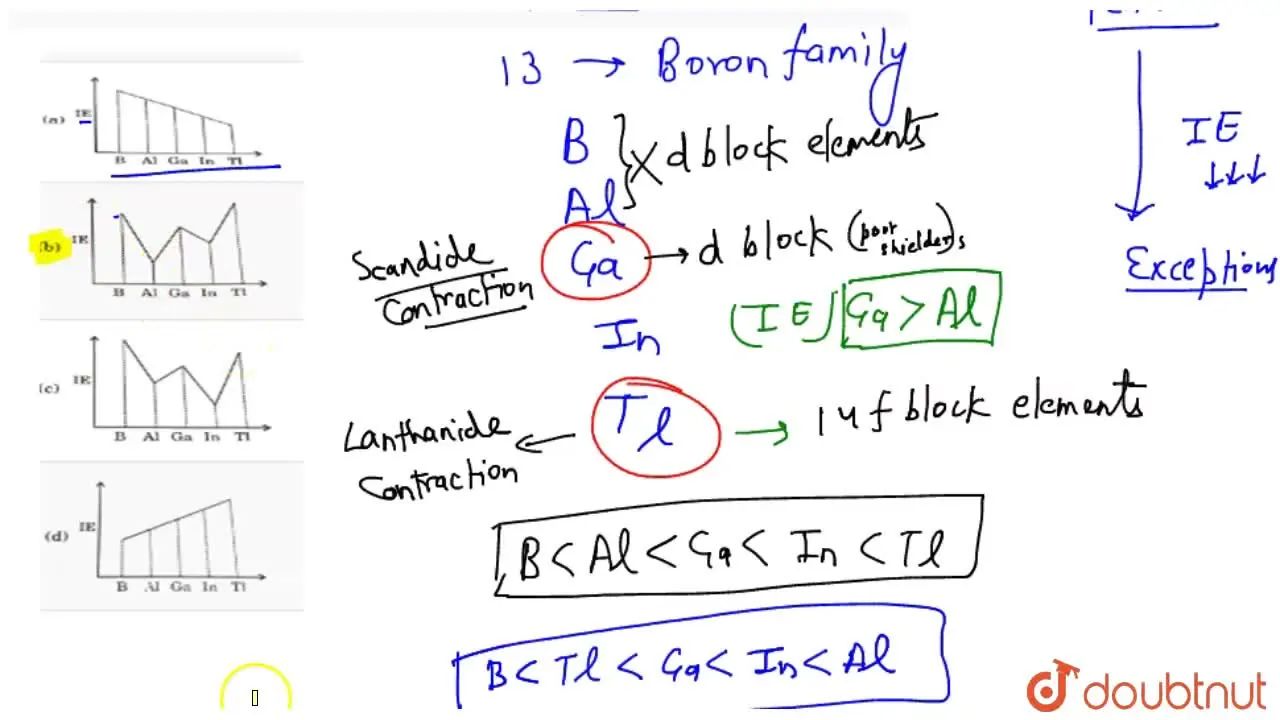 13 → Boron family
B
Al
} X d block elements
Ga → d block (poor shielders)
Scandide
Contraction
(IE) Ga > Al
In
Tl → 14 f block elements
Lanthanide
Contraction
B < Al < Ga < In < Tl
B < Tl < Ga < In < Al
IE
↓↓↓
Exceptions
(a) IE
B Al Ga In Tl
(b) IE
B Al Ga In Tl
(c) IE
B Al Ga In Tl
(d) IE
B Al Ga In Tl
doubtnut